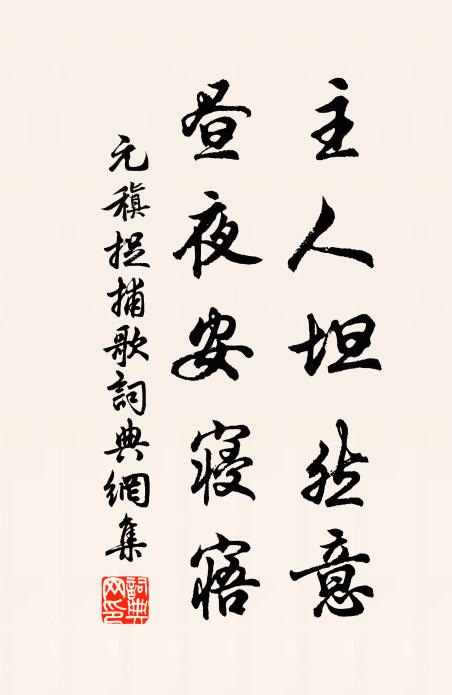 主人坦然意
昼夜安寝寤
元稹捉捕歌詞典網集
詞典網印